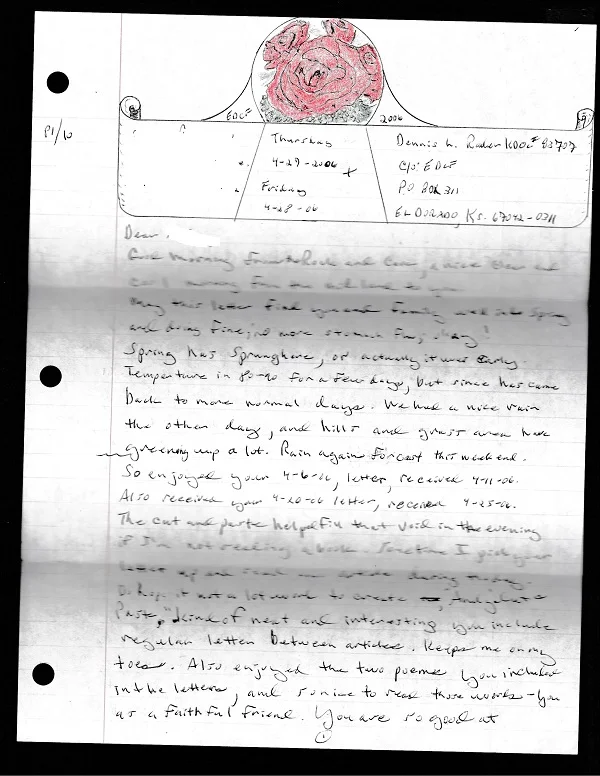 P1/10
EDCF 2006
Thursday
4-27-2006 +
Friday
4-28-06
Dennis L. Rader KDOC# 83707
C/O: EDCF
P.O Box 311
EL DORADO, KS. 67042-0311
Dear
Good Morning
morning From the to you
May this letter Find you and Family well into Spring
and doing Fine, no more stomach Flu, okay!
Spring has Sprung here, or actually it was Early.
Temperature in 80-90 For a Few days, but since has came
back to more normal days. We had a nice rain
the other day, and hills and grass area have
greening up a lot. Rain again Forcast this weekend.
So enjoyed your 4-6-06, letter, received 4-11-06.
Also received your 4-20-06 letter, received 4-25-06.
The cut and paste help Fill that void in the evening
if I'm not reading a book. Sometime I pick your
letter up and read an article during the day.
Do hope it not a lot work to create
Paste," kind of neat and interesting you include
regular letter between articles. Keeps me on my
toes. Also enjoyed the two poems you included
in the letters, and so nice to read those words - you
as a Faithful Friend. You are so good at
1